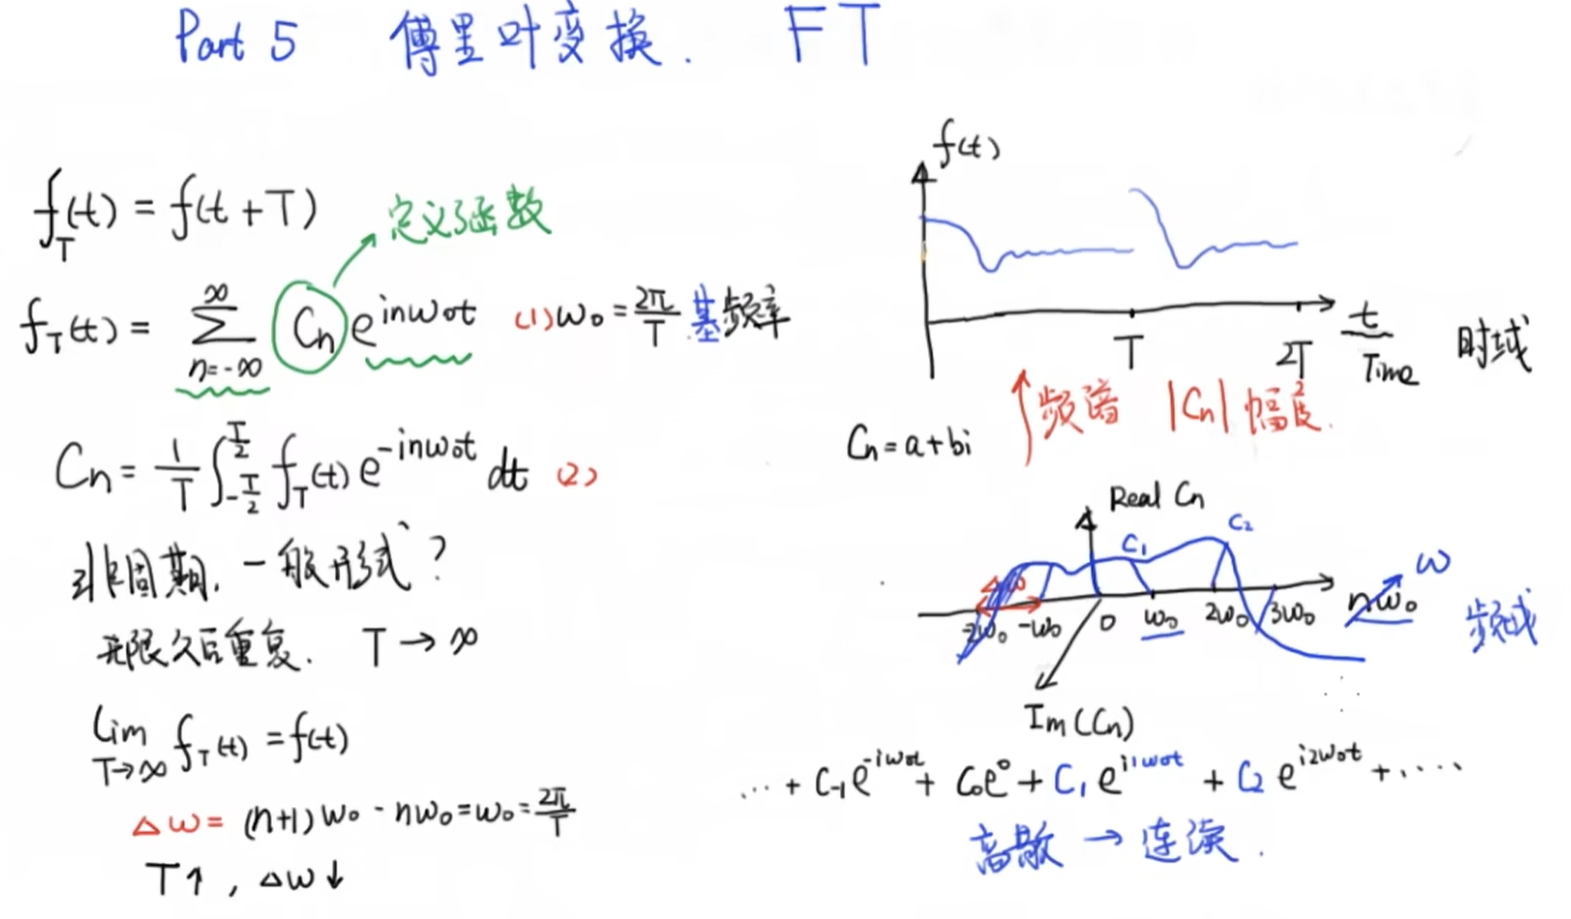 Part 5 傅里叶变换. FT
f_T(t) = f(t+T)
定义了函数
f_T(t) = ∑_{n=-∞}^{∞} C_n e^{inω₀t} (1) ω₀ = 2π/T 基频率
C_n = 1/T ∫_{-T/2}^{T/2} f_T(t) e^{-inω₀t} dt (2)
非周期, 一般形式?
无限久后重复. T → ∞
lim_{T→∞} f_T(t) = f(t)
Δω = (n+1)ω₀ - nω₀ = ω₀ = 2π/T
T↑, Δω↓
f(t)
T 2T t Time 时域
C_n = a+bi 频谱 |C_n| 幅度.
Real C_n
C₁ C₂
Δω
-2ω₀ -ω₀ 0 ω₀ 2ω₀ 3ω₀ nω₀ ω 频域
Im(C_n)
... + C₋₁e^{-iω₀t} + C₀e^0 + C₁e^{i1ω₀t} + C₂ e^{i2ω₀t} + ....
离散 → 连续.